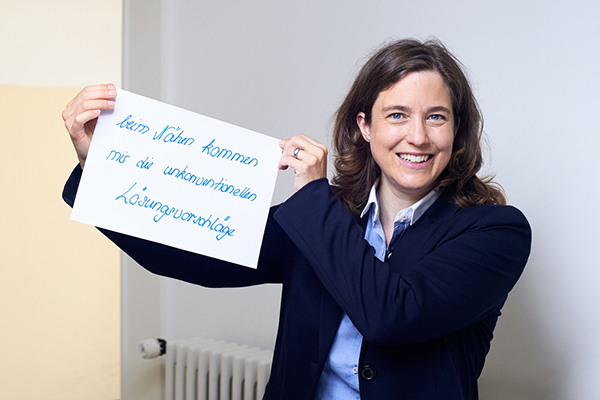 beim Nähen kommen
mir die unkonventionellen
Lösungsvorschläge